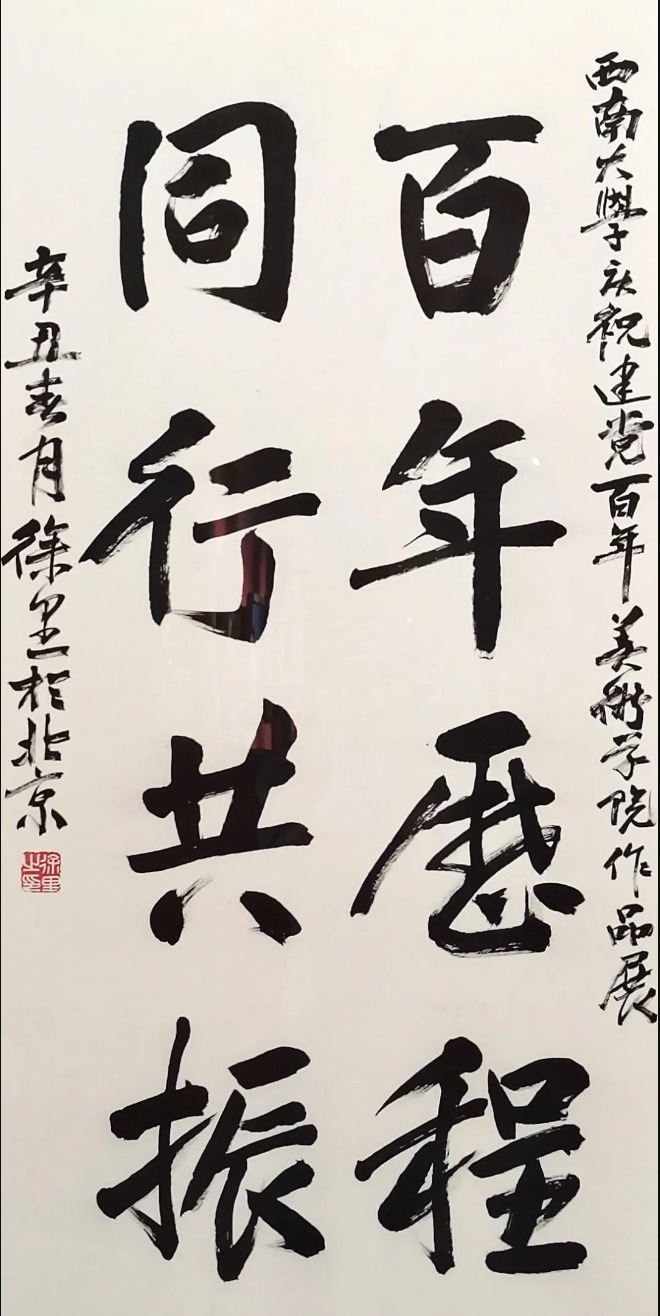 西南大學庆祝建党百年美術学院作品展
百年歷程
同行共振
辛丑春月徐里於北京
徐里之印